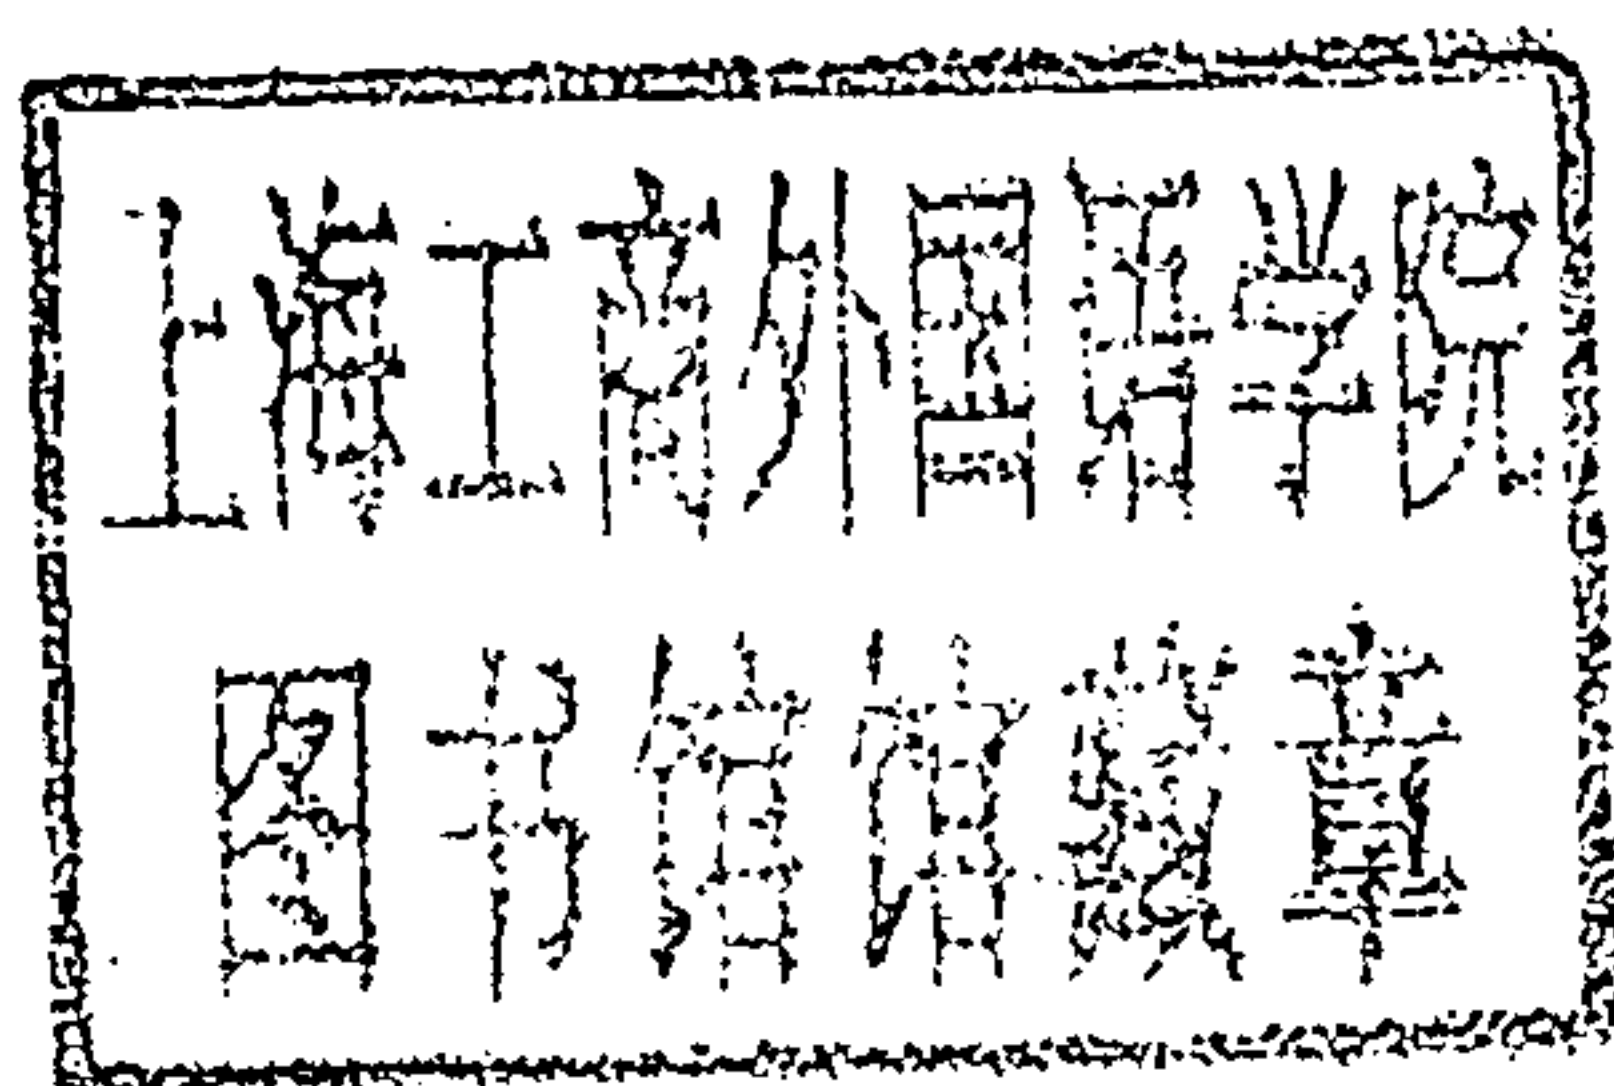 上海工商外国语学院
图书馆馆藏章